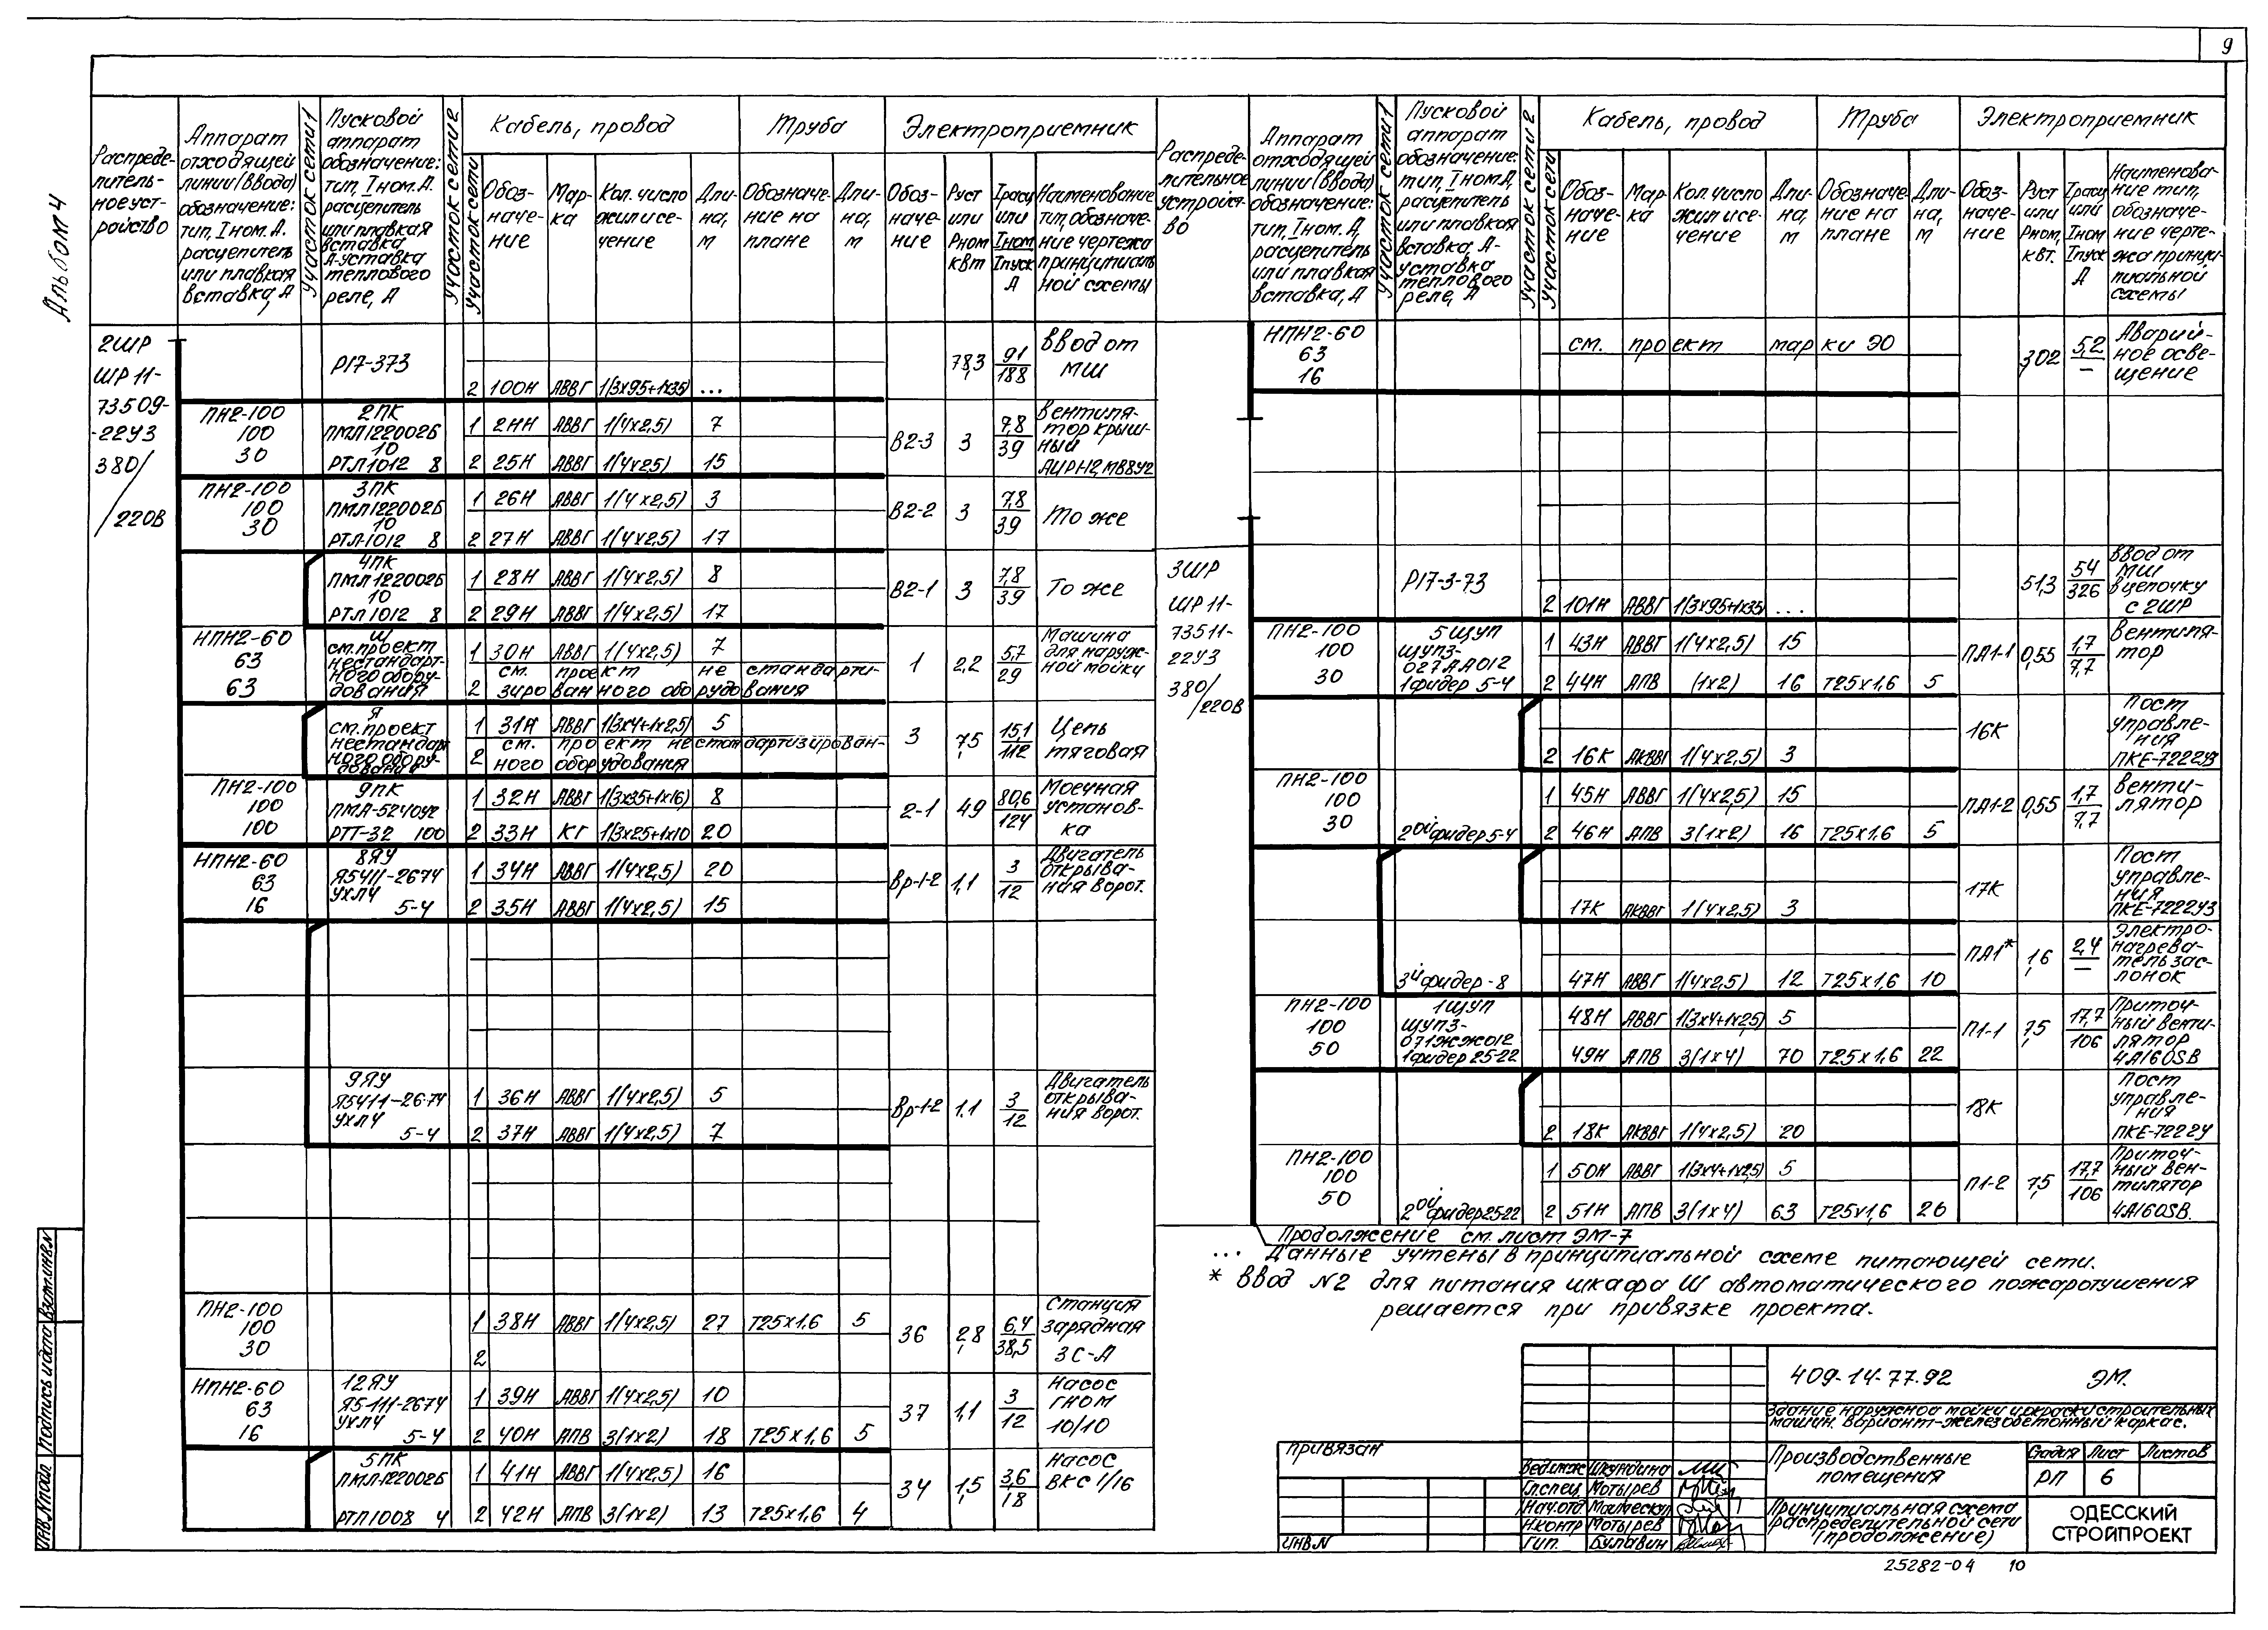 9
Альбом 4
Распреде-
литель-
ное уст-
ройство
Аппарат
отходящей
линии (ввода)
обозначение:
тип, Iном. А.
расцепитель
или плавкая
вставка, А
Участок сети 1
Пусковой
аппарат
обозначение:
тип, Iном. А.
расцепитель
или плавкая
вставка
А-уставка
теплового
реле, А
Участок сети 2
Кабель, провод
Участок сети
Обоз-
начe-
ние
Мар-
ка
Кол. число
жил и се-
чение
Дли-
на,
м
Труба
Обозначе-
ние на
плане
Дли-
на,
м
Электроприемник
Обоз-
наче-
ние
Руст
или
Рном
квт
Iрасч
или
Iном
Iпуск
А
Наименование
тип, обозначе-
ние чертежа
принципиаль-
ной схемы
2ШР
ШР 11-
73509-
-22У3
380/
/220В
Р17-373
2 100Н АВВГ 1(3х95+1х35) ...
78,3 91/188 Ввод от МШ
ПН2-100 100 30
2ПК ПМЛ122002Б 10 РТЛ1012 8
1 24Н АВВГ 1(4х2,5) 7
2 25Н АВВГ 1(4х2,5) 15
В2-3 3 7,8/39 Вентиля-
тор крыш-
ный
ПН2-100 100 30
3ПК ПМЛ122002Б 10 РТЛ1012 8
1 26Н АВВГ 1(4х2,5) 3
2 27Н АВВГ 1(4х2,5) 17
В2-2 3 7,8/39 То же
4ПК ПМЛ122002Б 10 РТЛ1012 8
1 28Н АВВГ 1(4х2,5) 8
2 29Н АВВГ 1(4х2,5) 17
В2-1 3 7,8/39 То же
НПН2-60 63 63
Ш см. проект нестандарт-
ного обору-
дования
1 30Н АВВГ 1(4х2,5) 7
2 см. проект не стандарти-
зированного оборудования
1 2,2 5,7/29 Машина
для наруж-
ной мойки
Я см. проект нестандар
ного обору-
дования
1 31Н АВВГ 1(3х4+1х2,5) 5
2 см. проект нестандартизирован-
ного оборудования
3 7,5 15,1/112 Цепь
тяговая
ПН2-100 100 100
9ПК ПМА-5240У2 РТТ-32 100
1 32Н АВВГ 1(3х35+1х16) 8
2 33Н КГ 1(3х25+1х10 20
2-1 49 80,6/124 Моечная
установ-
ка
НПН2-60 63 16
8ЯУ Я5411-2674 УХЛ4 5-4
1 34Н АВВГ 1(4х2,5) 20
2 35Н АВВГ 1(4х2,5) 15
Вр-1-2 1,1 3/12 Двигатель
открыва-
ния ворот.
9ЯУ Я5411-2674 УХЛ4 5-4
1 36Н АВВГ 1(4х2,5) 5
2 37Н АВВГ 1(4х2,5) 7
Вр-1-2 1.1 3/12 Двигатель
открыва-
ния ворот.
ПН2-100 100 30
1 38Н АВВГ 1(4х2,5) 27 Т25х1.6 5
2
36 2,8 6,4/38,5 Станция
зарядная
ЗС-А
НПН2-60 63 16
12ЯУ Я5-111-2674 УХЛ4 5-4
1 39Н АВВГ 1(4х2,5) 10
2 40Н АПВ 3(1х2) 18 Т25х1,6 5
37 1,1 3/12 Насос
ГНОМ
10/10
5ПК ПМЛ-122002Б РТЛ1008 4
1 41Н АВВГ 1(4х2,5) 16
2 42Н АПВ 3(1х2) 13 Т25х1,6 4
34 1,5 3,6/18 Насос
ВКС 1/16
Распреде-
лительное
устройст-
во
Аппарат
отходящей
линии (ввода)
обозначение:
тип, Iном. А,
расцепитель
или плавкая
вставка, А
Участок сети 1
Пусковой
аппарат
обозначение:
тип, Iном А,
расцепитель
или плавкая
вставка, А-
уставка
теплового
реле, А
Участок сети 2
Кабель, провод
Участок сети
Обоз-
наче-
ние
Мар-
ка
Кол. число
жил и се-
чение
Дли-
на,
м
Труба
Обозначе-
ние на
плане
Дли-
на,
м
Электроприемник
Обоз-
наче-
ние
Руст
или
Рном,
квт.
Iрасч
или
Iном
Iпуск
А
Наименова-
ние тип,
обозначе-
ние черте-
жа принци-
пиальной
схемы
НПН2-60 63 16
см. проект марки ЭО
3,02 5,2/— Аварий-
ное осве-
щение
3ШР
ШР 11-
73511-
22У3
380/
/220В
Р17-3-73
2 101Н АВВГ 1(3х95+1х35) ...
51,3 54/326 Ввод от
МШ
в цепочку
с 2ШР
ПН2-100 100 30
5ЩУП ЩУП3-
027АА012
1фидер 5-4
1 43Н АВВГ 1(4х2,5) 15
2 44Н АПВ (1х2) 16 Т25х1,6 5
ПА1-1 0,55 1,7/7,7 Вентиля-
тор
2 16К АКВВГ 1(4х2,5) 3
16К Пост
управле-
ния
ПКЕ-722У3
ПН2-100 100 30
2ой фидер 5-4
1 45Н АВВГ 1(4х2,5) 15
2 46Н АПВ 3(1х2) 16 Т25х1.6 5
ПА1-2 0,55 1,7/7,7 Венти-
лятор
17К АКВВГ 1(4х2,5) 3
17К Пост
управле-
ния
ПКЕ-722У3
3й фидер-8
47Н АВВГ 1(4х2,5) 12 Т25х1,6 10
ПА1* 1,6 2,4/— Электро-
нагрева-
тель зас-
лонок
ПН2-100 100 50
1ЩУП ЩУП3-
071ЖЖ012
1фидер 25-22
48Н АВВГ 1(3х4+1х2,5) 5
49Н АПВ 3(1х4) 70 Т25х1,6 22
П1-1 7,5 17,7/106 Приточ-
ный венти-
лятор
4А160SВ
2 18К АКВВГ 1(4х2,5) 20
18К Пост
управле-
ния
ПКЕ-722У
ПН2-100 100 50
2ой фидер 25-22
1 50Н АВВГ 1(3х4+1х2,5) 5
2 51Н АПВ 3(1х4) 63 Т25х1,6 26
П1-2 7,5 17,7/106 Приточ-
ный вен-
тилятор
4А160SВ.
Продолжение см. лист ЭМ-7
... Данные учтены в принципиальной схеме питающей сети.
* Ввод №2 для питания шкафа Ш автоматического пожаротушения
решается при привязке проекта.
409-14-77.92 ЭМ.
Здание наружной мойки и окраски строительных
машин. Вариант-железобетонный каркас.
Привязан
Инв. №
Вед.инж Шкундина
Гл.спец. Мотырев
Нач.отд
Н.контр Мотырев
Гип. Булавин
Производственные
помещения
Стадия Лист Листов
РП 6
Принципиальная схема
распределительной сети
(продолжение)
ОДЕССКИЙ
СТРОЙПРОЕКТ
25282-04 10
Инв.№подл. Подпись и дата Взам.инв.№